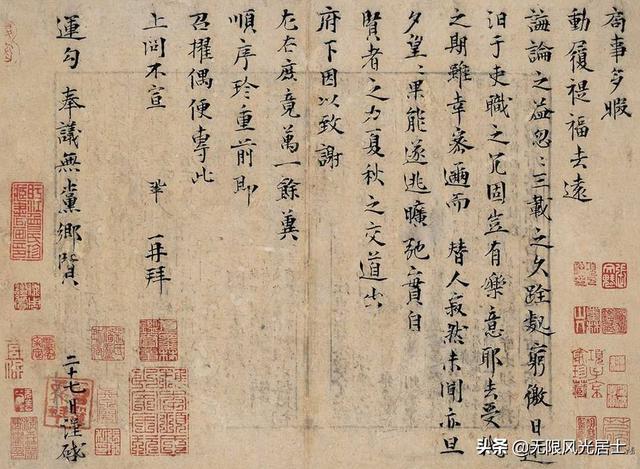 局事多暇
動履禔福去遠
誨論之益忽〻三載之久跧處窮徼日迷
汩于吏職之冗固豈有樂意耶去受
之期雖幸密邇而替人寂然未聞亦旦
夕望〻果能遂逃曠弛實自
賢者之力夏秋之交道出
府下因以致謝
左右庶竟萬一餘冀
順序珍重前即
召擢偶便專此
上問不宣 鞏 再拜
運勾奉議無黨鄉賢 二十七日謹啓
头条 @无限风光居士